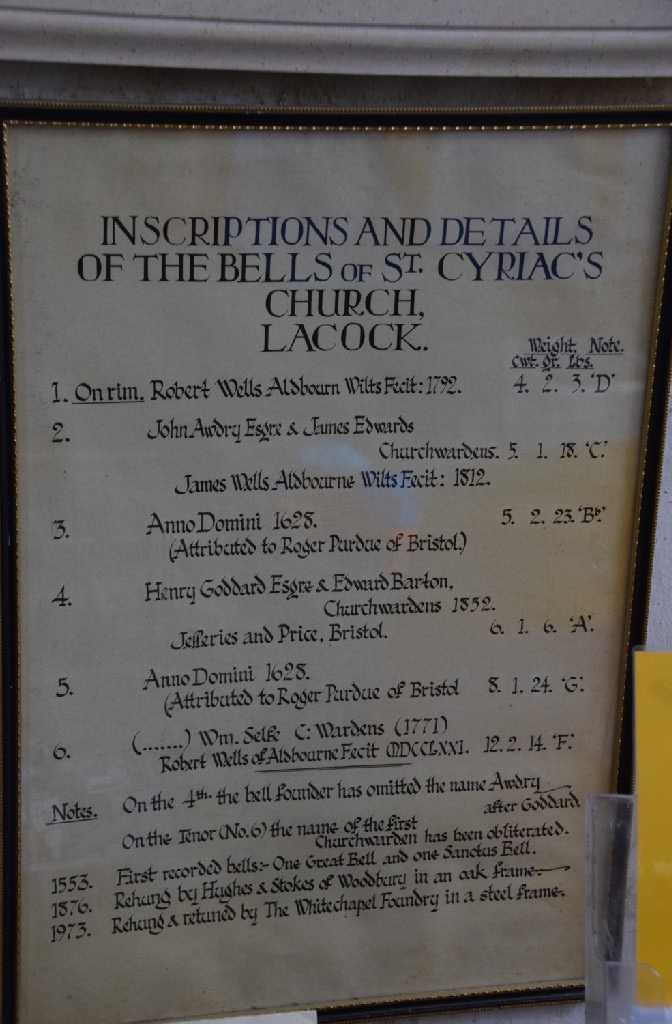 INSCRIPTIONS AND DETAILS
OF THE BELLS OF ST. CYRIAC'S
CHURCH,
LACOCK.
Weight. Note.
Cwt. qr. Lbs.
1. On rim. Robert Wells Aldbourn Wilts Fecit: 1792. 4. 2. 3. 'D'
2. John Awdry Esqre & James Edwards
Churchwardens. 5. 1. 18. 'C'.
James Wells Aldbourne Wilts Fecit: 1812.
3. Anno Domini 1628. 5. 2. 23. 'Bb'
(Attributed to Roger Purdue of Bristol.)
4. Henry Goddard Esqre & Edward Barton,
Churchwardens 1852.
Jefferies and Price, Bristol. 6. 1. 6. 'A'.
5. Anno Domini 1628.
(Attributed to Roger Purdue of Bristol 8. 1. 24. 'G'.
6. (.......) Wm. Selfe C: Wardens (1771)
Robert Wells of Aldbourne Fecit MDCCLXXI. 12. 2. 14. 'F'.
Notes. On the 4th. the bell founder has omitted the name Awdry
after Goddard.
On the Tenor (No. 6) the name of the first
Churchwarden has been obliterated.
1553. First recorded bells:- One Great Bell and one Sanctus Bell.
1876. Rehung by Hughes & Stokes of Woodbury in an oak frame.
1973. Rehung & retuned by The Whitechapel Foundry in a steel frame.